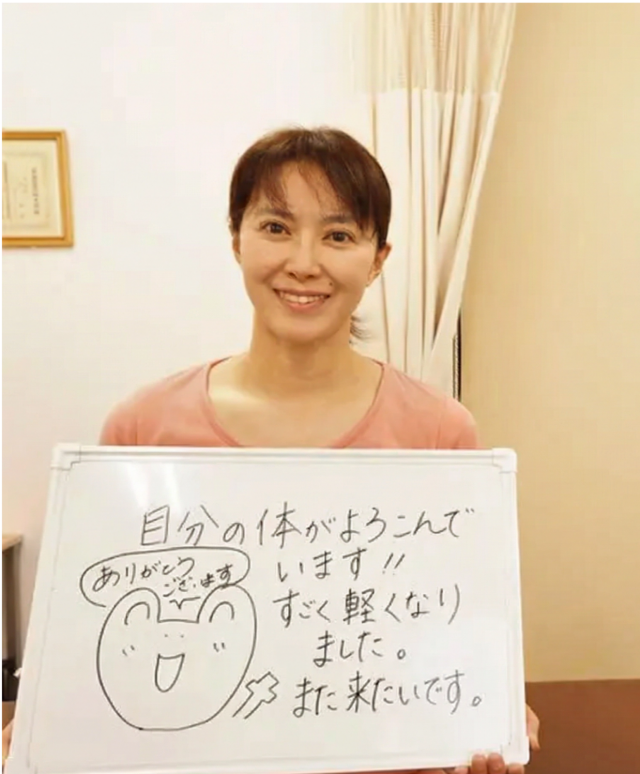 自分の体がよろこんで
います!!
すごく軽くなり
ました。
また来たいです。
ありがとう
ございます